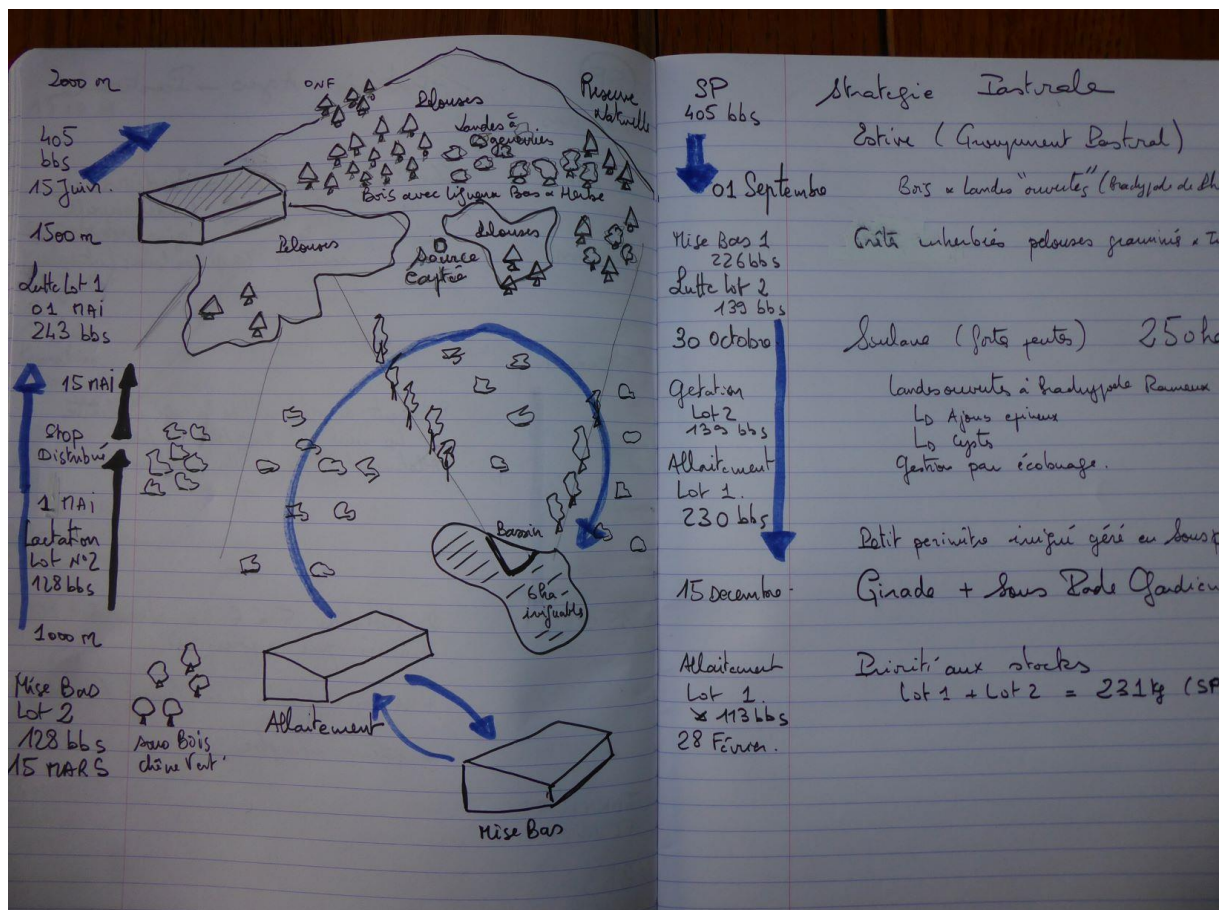 2000 m
405
bbs
15 Juin.
1500 m
Lutte Lot 1
01 MAI
243 bbs
15 MAI
Stop
Distribué
1 MAI
Lactation
Lot N°2
128 bbs
1000 m
Mise Bas
Lot 2
128 bbs
15 MARS
ONF
Pelouses
Réserve
Naturelle
Landes à
genévriers
Bois avec ligneux Bas & Herbe
Pelouses
Pelouses
Source
Captée
Bassin
6ha
irriguables
sous Bois
chêne Vert
Allaitement
Mise Bas
SP
405 bbs
01 Septembre
Mise Bas 1
226 bbs
Lutte Lot 2
139 bbs
30 Octobre
Gestation
Lot 2
139 bbs
Allaitement
Lot 1.
230 bbs
15 Decembre
Allaitement
Lot 1.
113 bbs
28 Février.
Strategie Pastorale
Estive (Groupement Pastoral)
Bois & Landes "ouvertes" (
pelouses
Soulane (forte pentes) 250 ha
Landes ouvertes à brachypode Rameux
Ajoncs epineux
Cyste
Gestion par écobuage.
Petit perimètre irrigué géré en
Girade + Sous Gardien
Priorité aux stocks
Lot 1 + Lot 2 = 231 kg (SP